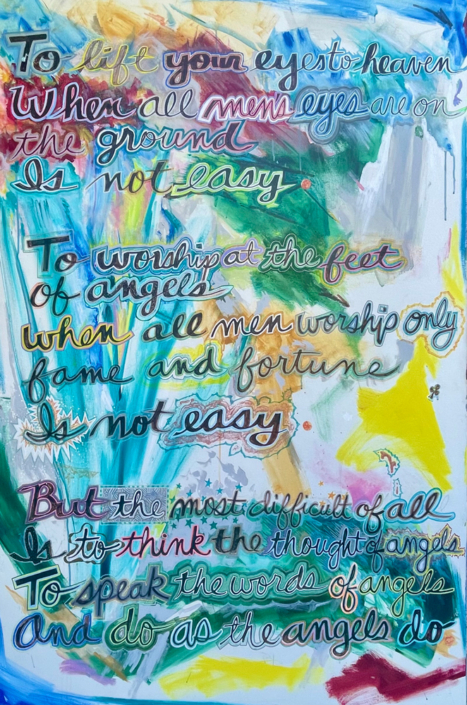 To lift your eyes to heaven
When all men's eyes are on
the ground
Is not easy
To worship at the feet
of angels
when all men worship only
fame and fortune
Is not easy
But the most difficult of all
Is to think the thought of angels
To speak the words of angels
And do as the angels do